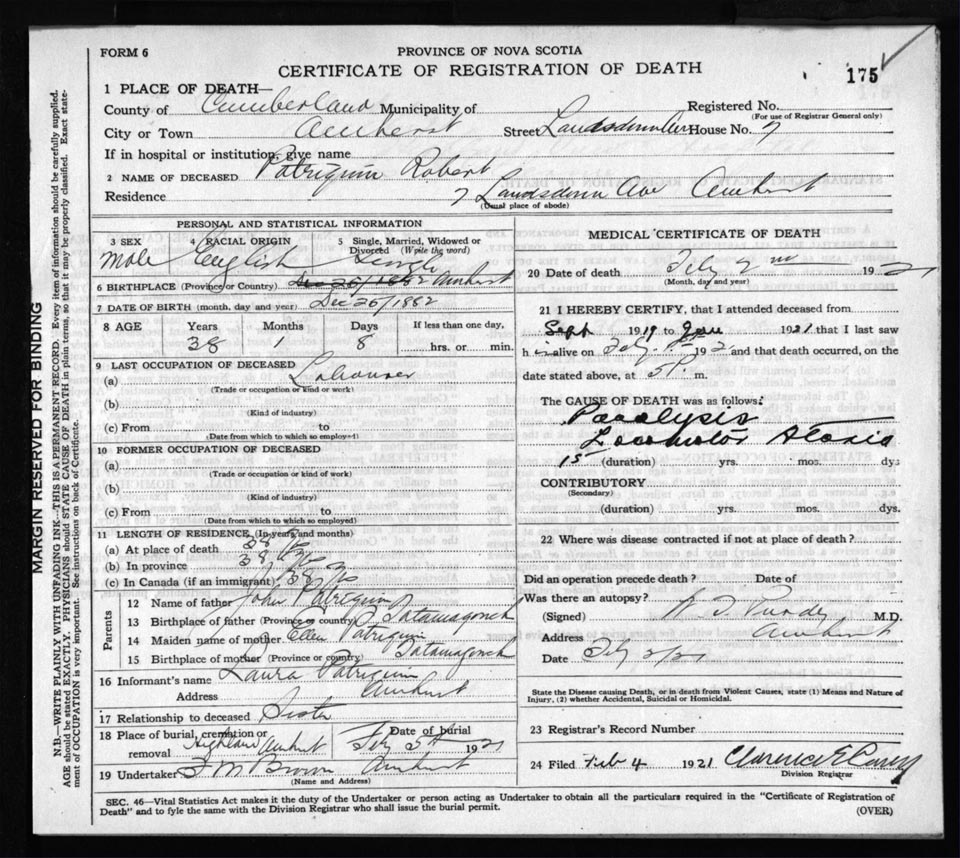 FORM 6
PROVINCE OF NOVA SCOTIA
CERTIFICATE OF REGISTRATION OF DEATH
175
1 PLACE OF DEATH—
County of Cumberland Municipality of Registered No.
(For use of Registrar General only)
City or Town Amherst Street Landsdown Ave House No. 7
If in hospital or institution, give name
2 NAME OF DECEASED Patriquin Robert
Residence 7 Landsdown Ave Amherst
(Usual place of abode)
PERSONAL AND STATISTICAL INFORMATION
3 SEX 4 RACIAL ORIGIN 5 Single, Married, Widowed or Divorced (Write the word)
Male English Single
6 BIRTHPLACE (Province or Country) Dec 26/1882 Amherst
7 DATE OF BIRTH (month, day and year) Dec 26/1882
8 AGE Years Months Days If less than one day,
38 1 8 hrs. or min.
9 LAST OCCUPATION OF DECEASED
(a) Labourer
(Trade or occupation or kind of work)
(b)
(Kind of industry)
(c) From to
(Date from which to which so employed)
10 FORMER OCCUPATION OF DECEASED
(a)
(Trade or occupation or kind of work)
(b)
(Kind of industry)
(c) From to
(Date from which to which so employed)
11 LENGTH OF RESIDENCE (In years and months)
(a) At place of death 38
(b) In province 38
(c) In Canada (if an immigrant) 38
Parents
12 Name of father John Patriquin
13 Birthplace of father (Province or country) Tatamagouch
14 Maiden name of mother Ellen Patriquin
15 Birthplace of mother (Province or country) Tatamagouch
16 Informant's name Laura Patriquin
Address Amherst
17 Relationship to deceased Sister
18 Place of burial, cremation or removal Highland Amherst Date of burial Feby 1921
19 Undertaker Brown Amherst
(Name and Address)
MEDICAL CERTIFICATE OF DEATH
20 Date of death Feby 2nd 1921
(Month, day and year)
21 I HEREBY CERTIFY, that I attended deceased from
Sept 1919 to Jan 1921 that I last saw
him alive on Feby 1st 192 and that death occurred, on the
date stated above, at 5 m.
The CAUSE OF DEATH was as follows:
Paralysis
Locomotor Ataxia
15 (duration) yrs. mos. dys
CONTRIBUTORY
(Secondary)
(duration) yrs. mos. dys.
22 Where was disease contracted if not at place of death?
Did an operation precede death? Date of
Was there an autopsy?
(Signed) Purdy M.D.
Address Amherst
Date Feby 2/21
State the Disease causing Death, or in death from Violent Causes, state (1) Means and Nature of
Injury, (2) whether Accidental, Suicidal or Homicidal.
23 Registrar's Record Number
24 Filed Feb 4 1921 Clarence E Carey
Division Registrar
SEC. 46—Vital Statistics Act makes it the duty of the Undertaker or person acting as Undertaker to obtain all the particulars required in the "Certificate of Registration of
Death" and to fyle the same with the Division Registrar who shall issue the burial permit.
(OVER)
MARGIN RESERVED FOR BINDING
N.B.—WRITE PLAINLY WITH UNFADING INK—THIS IS A PERMANENT RECORD. Every item of information should be carefully supplied.
AGE should be stated EXACTLY. PHYSICIANS should STATE CAUSE OF DEATH in plain terms, so that it may be properly classified. Exact state-
ment of OCCUPATION is very important. See instructions on back of Certificate.